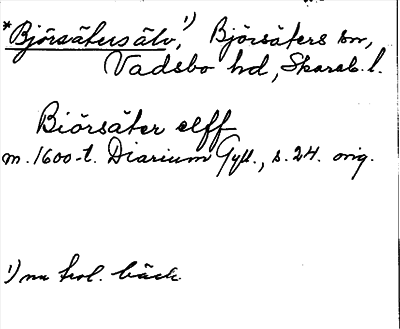 *Björsätersälv,¹) Björsäters sn,
Vadsbo hd, Skarab. l.
Biörsäter elff
m. 1600-t. Diarium Gyll., s. 24. orig.
¹) nu trol. bäck